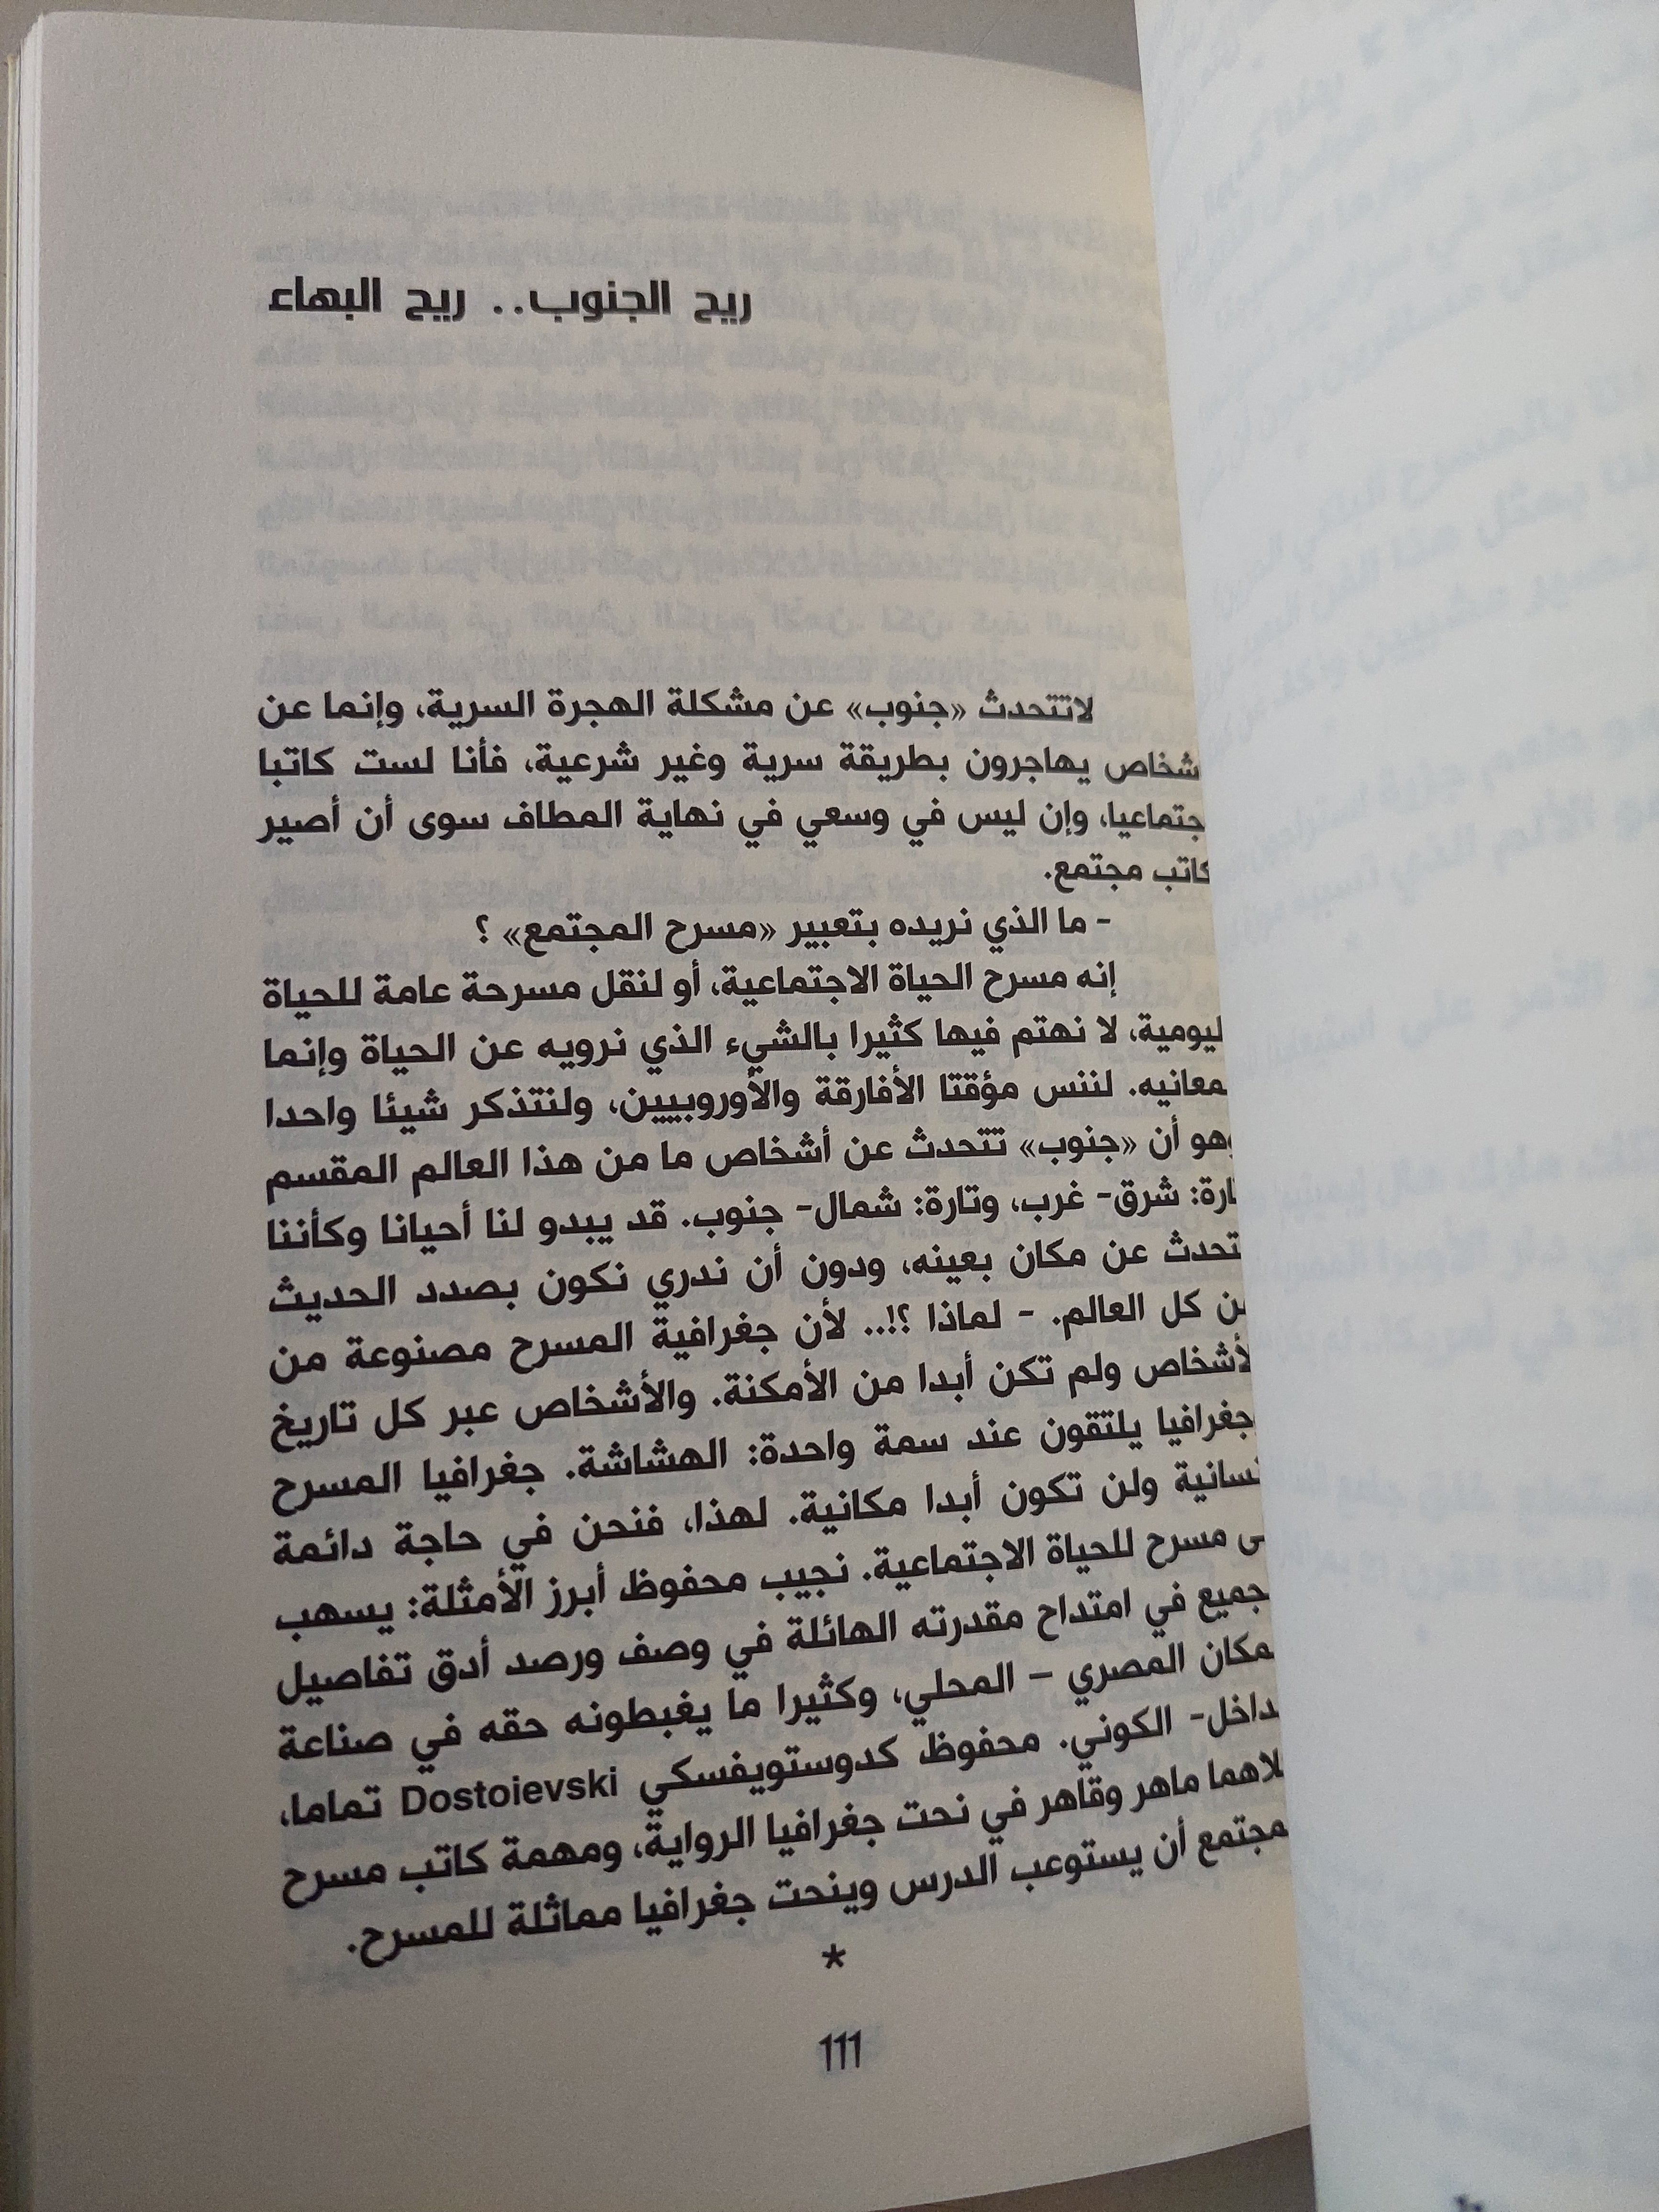 ريح الجنوب.. ريح البهاء
لاتتحدث «جنوب» عن مشكلة الهجرة السرية، وإنما عن
شخاص يهاجرون بطريقة سرية وغير شرعية، فأنا لست كاتبا
جتماعيا، وإن ليس في وسعي في نهاية المطاف سوى أن أصير
كاتب مجتمع.
- ما الذي نريده بتعبير «مسرح المجتمع» ؟
إنه مسرح الحياة الاجتماعية، أو لنقل مسرحة عامة للحياة
ليومية، لا نهتم فيها كثيرا بالشيء الذي نرويه عن الحياة وإنما
معانيه. لننس مؤقتا الأفارقة والأوروبيين، ولنتذكر شيئا واحدا
وهو أن «جنوب» تتحدث عن أشخاص ما من هذا العالم المقسم
ارة: شرق- غرب، وتارة: شمال- جنوب. قد يبدو لنا أحيانا وكأننا
تحدث عن مكان بعينه، ودون أن ندري نكون بصدد الحديث
ن كل العالم. - لماذا ؟!.. لأن جغرافية المسرح مصنوعة من
لأشخاص ولم تكن أبدا من الأمكنة. والأشخاص عبر كل تاريخ
جغرافيا يلتقون عند سمة واحدة: الهشاشة. جغرافيا المسرح
نسانية ولن تكون أبدا مكانية. لهذا، فنحن في حاجة دائمة
ى مسرح للحياة الاجتماعية. نجيب محفوظ أبرز الأمثلة: يسهب
جميع في امتداح مقدرته الهائلة في وصف ورصد أدق تفاصيل
مكان المصري – المحلي، وكثيرا ما يغبطونه حقه في صناعة
داخل- الكوني. محفوظ كدوستويفسكي Dostoievski تماما،
لاهما ماهر وقاهر في نحت جغرافيا الرواية، ومهمة كاتب مسرح
مجتمع أن يستوعب الدرس وينحت جغرافيا مماثلة للمسرح.
*
111